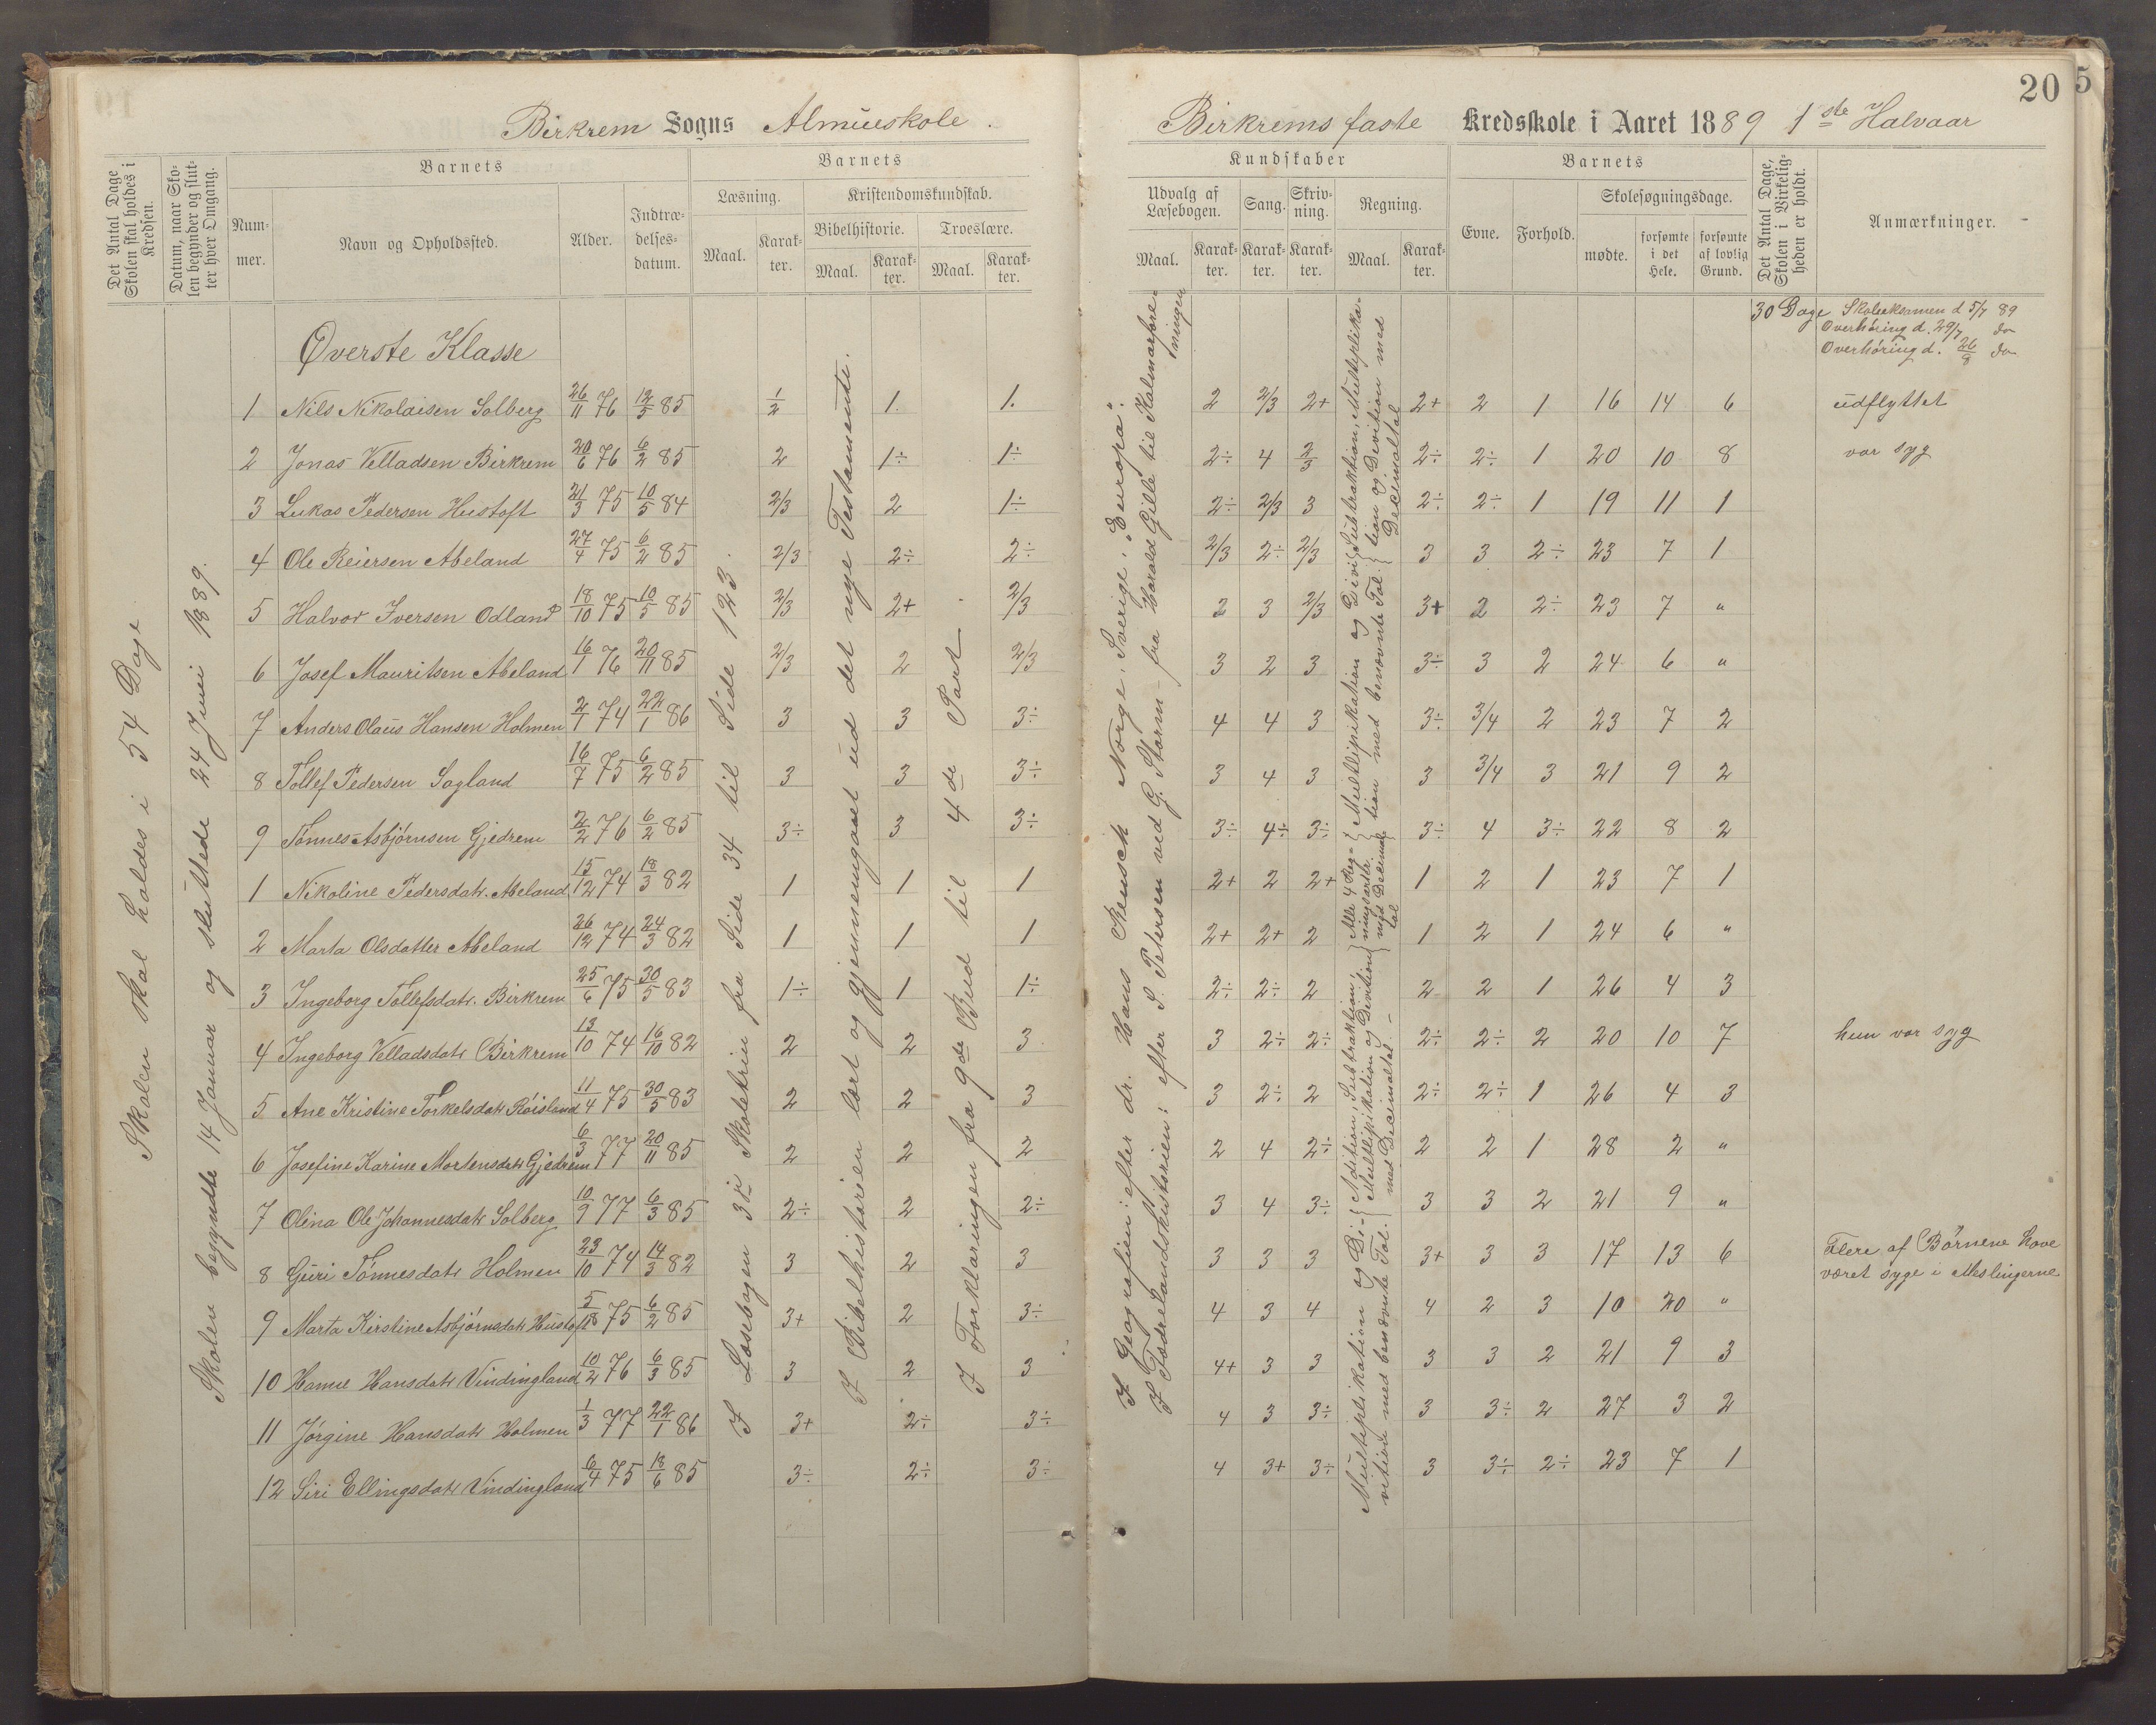 20
5
Birkrem Sogns Almueskole.
Birkrems faste Kredsskole i Aaret 1889 1ste Halvaar
Det Antal Dage Skolen skal holdes i Kredsen.
Datum, naar Skolen begynder og slutter hver Omgang.
Barnets
Nummer.
Navn og Opholdssted.
Alder.
Indtrædelsesdatum.
Barnets
Læsning.
Maal.
Karakter.
Kristendomskundskab.
Bibelhistorie.
Maal.
Karakter.
Troeslære.
Maal.
Karakter.
Kundskaber
Udvalg af Læsebogen.
Maal.
Karakter.
Sang.
Karakter.
Skrivning.
Karakter.
Regning.
Maal.
Karakter.
Barnets
Evne.
Forhold.
Skolesøgningsdage.
mødte.
forsømte i det Hele.
forsømte af lovlig Grund.
Det Antal Dage, Skolen i Virkeligheden er holdt.
Anmærkninger.
Skolen skal holdes i 54 Dage
Skolen begyndte 14 Januar og sluttede 24 Juni 1889.
I Læsebogen 3die Skoletrin fra Side 34 til Side 123.
I Bibelhistorien lært og gjennemgaaet ud det nye Testamente.
I Forklaringen fra 9de Bud til 4de Part
I Geografien: efter dr. Hans Reusch Norge, Sverige, "Europa".
I Fædrelandshistorien: efter S. Petersen ved G. Storm - fra Harald Gille til Kalmarforeningen
Multiplikation og Division med benævnte Tal.
Adition, Subtraktion, Multiplikation og Division med Decimaltal. -
Alle 4 Regningsarter med Decimaltal
Multiplikation og Division med benævnte Tal.
Subtraktion, Multiplikation og Devition med Decimaltal
30 Dage Skoleeksamen d 5/7 89
Overhøring d. 29/7 do
Overhøring d. 26/8 do
Øverste Klasse
1 Nils Nikolaisen Solberg 26/11 76 12/5 85 1/2 1. 1. 2 2/3 2+ 2+ 2 1 16 14 6 udflyttet
2 Jonas Velladsen Birkrem 20/6 76 6/2 85 2 1÷ 1÷ 2÷ 4 2/3 2÷ 2÷ 1 20 10 8 var syg
3 Lukas Pedersen Hustoft 21/3 75 10/5 84 2/3 2 1÷ 2÷ 2/3 3 2÷ 2÷ 1 19 11 1
4 Ole Reiersen Abeland 27/4 75 6/2 85 2/3 2÷ 2÷ 2/3 2÷ 2/3 3 3 2÷ 23 7 1
5 Halvor Iversen Odland 18/10 75 10/5 85 2/3 2+ 2/3 2 3 2/3 3+ 2 2÷ 23 7 "
6 Josef Mauritsen Abeland 16/1 76 20/11 85 2/3 2 2/3 3 2 3 3÷ 3 2 24 6 "
7 Anders Olaus Hansen Holmen 2/1 74 22/1 86 3 3 3÷ 4 4 3 3÷ 3/4 2 23 7 2
8 Tollef Pedersen Sagland 16/7 75 6/2 85 3 3 3÷ 3 4 3 3 3/4 3 21 9 2
9 Tønnes Asbjørnsen Gjedrem 2/2 76 6/2 85 3÷ 3 3÷ 3÷ 4÷ 3÷ 3÷ 4 3÷ 22 8 2
1 Nikoline Pedersdatr. Abeland 15/12 74 18/3 82 1 1 1 2+ 2 2+ 1 2 1 23 7 1
2 Marta Olsdatter Abeland 26/12 74 24/3 82 1 1 1 2+ 2+ 2 1 2 1 24 6 "
3 Ingeborg Tollefsdatr. Birkrem 25/6 75 30/5 83 1÷ 1 1÷ 2÷ 2÷ 2 2 2 1 26 4 3
4 Ingeborg Velladsdatr Birkrem 13/10 74 16/10 82 2 2 3 3 2÷ 2÷ 2÷ 2÷ 2 20 10 7 hun var syg
5 Ane Kristine Torkelsdatr Røisland 11/4 75 30/5 83 2 2 3 3 2÷ 2 2÷ 2÷ 1 26 4 3
6 Josefine Karine Mortensdatr Gjedrem 6/3 77 20/11 85 2 2 2 2 4 2÷ 2 2 1 28 2 "
7 Olina Ole Johannesdatr Solberg 10/9 77 6/3 85 2÷ 2 2÷ 3 4 3÷ 3 3 2 21 9 "
8 Guri Tønnesdatr Holmen 23/10 74 14/3 82 3 2 3 3 3 3 3+ 3 3 17 13 6 Flere af Børnene have været syge i Meslingerne
9 Marta Kirstine Asbjørnsdatr Hustoft 75 6/2 85 3+ 2 3÷ 4 3 4 4 2 3 10 20 "
10 Hanne Hansdatr Vindingland 10/2 76 6/3 85 3 2 3 4+ 3 3 3 3 2 21 9 3
11 Jørgine Hansdatr Holmen 1/3 77 22/1 86 3+ 2÷ 3÷ 4 3 3÷ 3 3÷ 2 27 3 2
12 Siri Ellingsdatr Vindingland 6/4 75 18/6 85 3÷ 2÷ 3÷ 4 3+ 3÷ 3 3÷ 2÷ 23 7 1